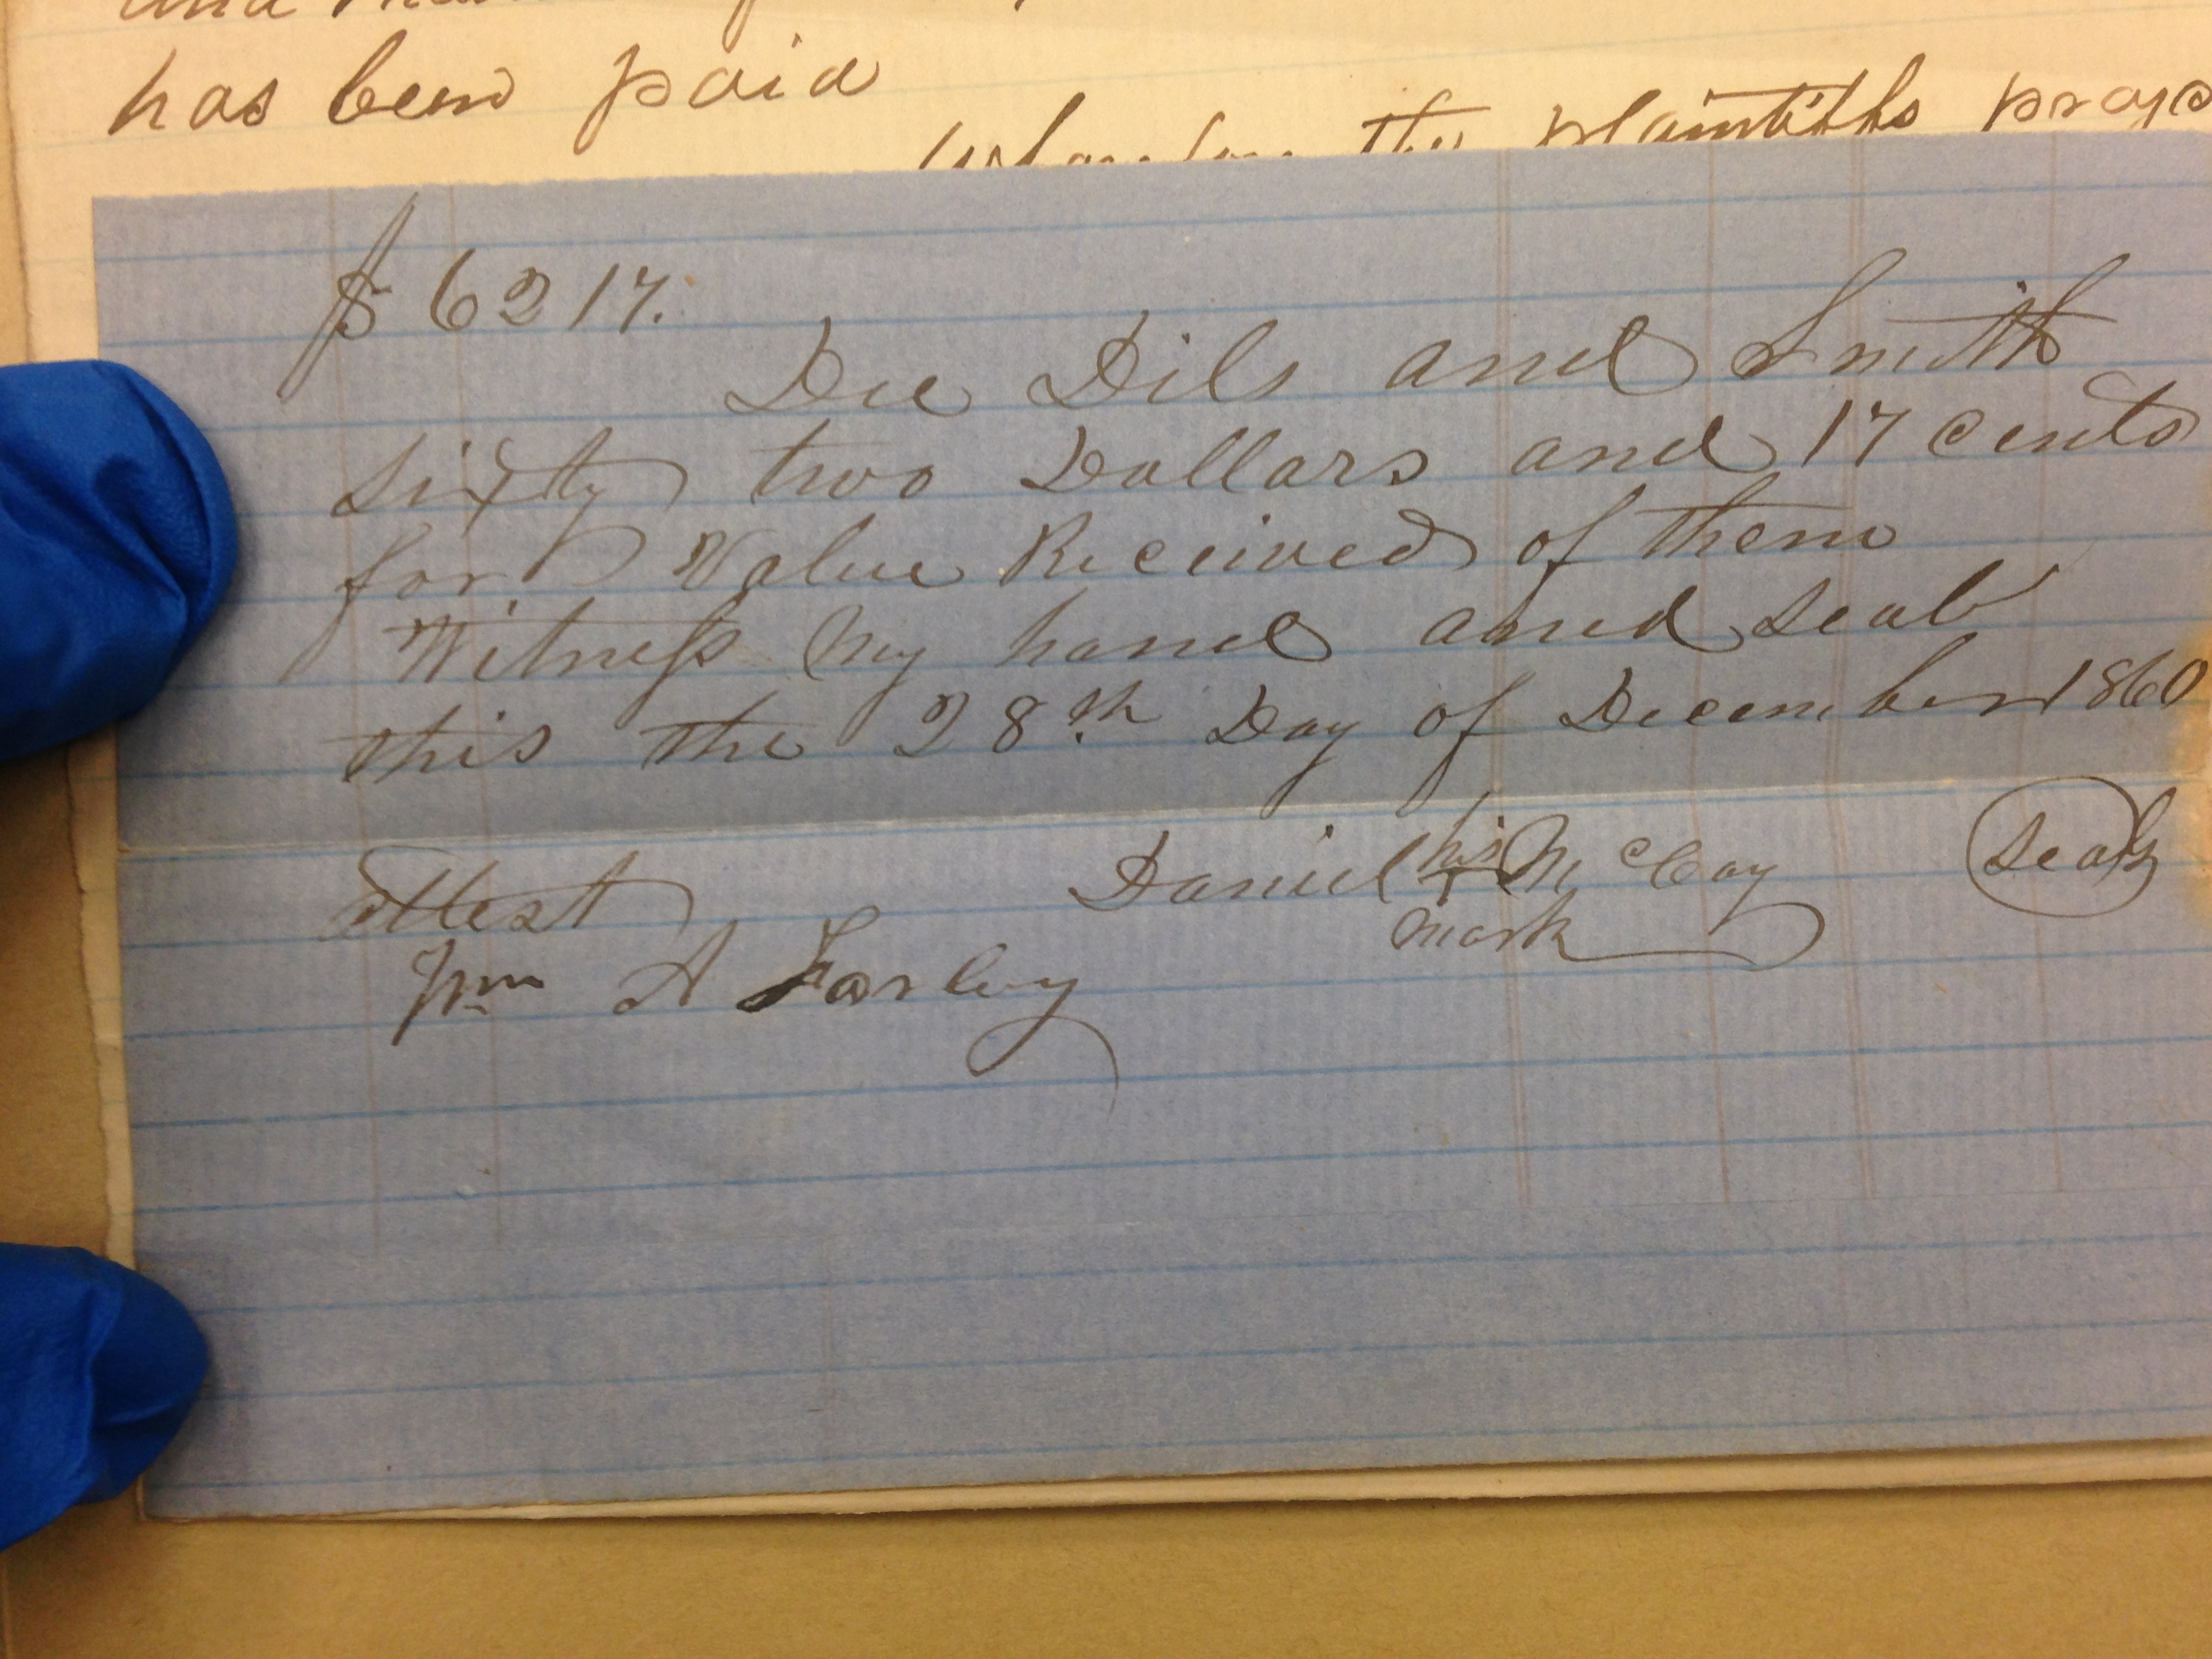 has been paid
the plaintiffs pray
$ 62 17.
Due Dils and Smith
sixty two Dollars and 17 cents
for Value Received of them
Witness my hand and seal
this the 28th Day of December 1860
Daniel his + mark McCoy Seal
Attest
Wm A Farley